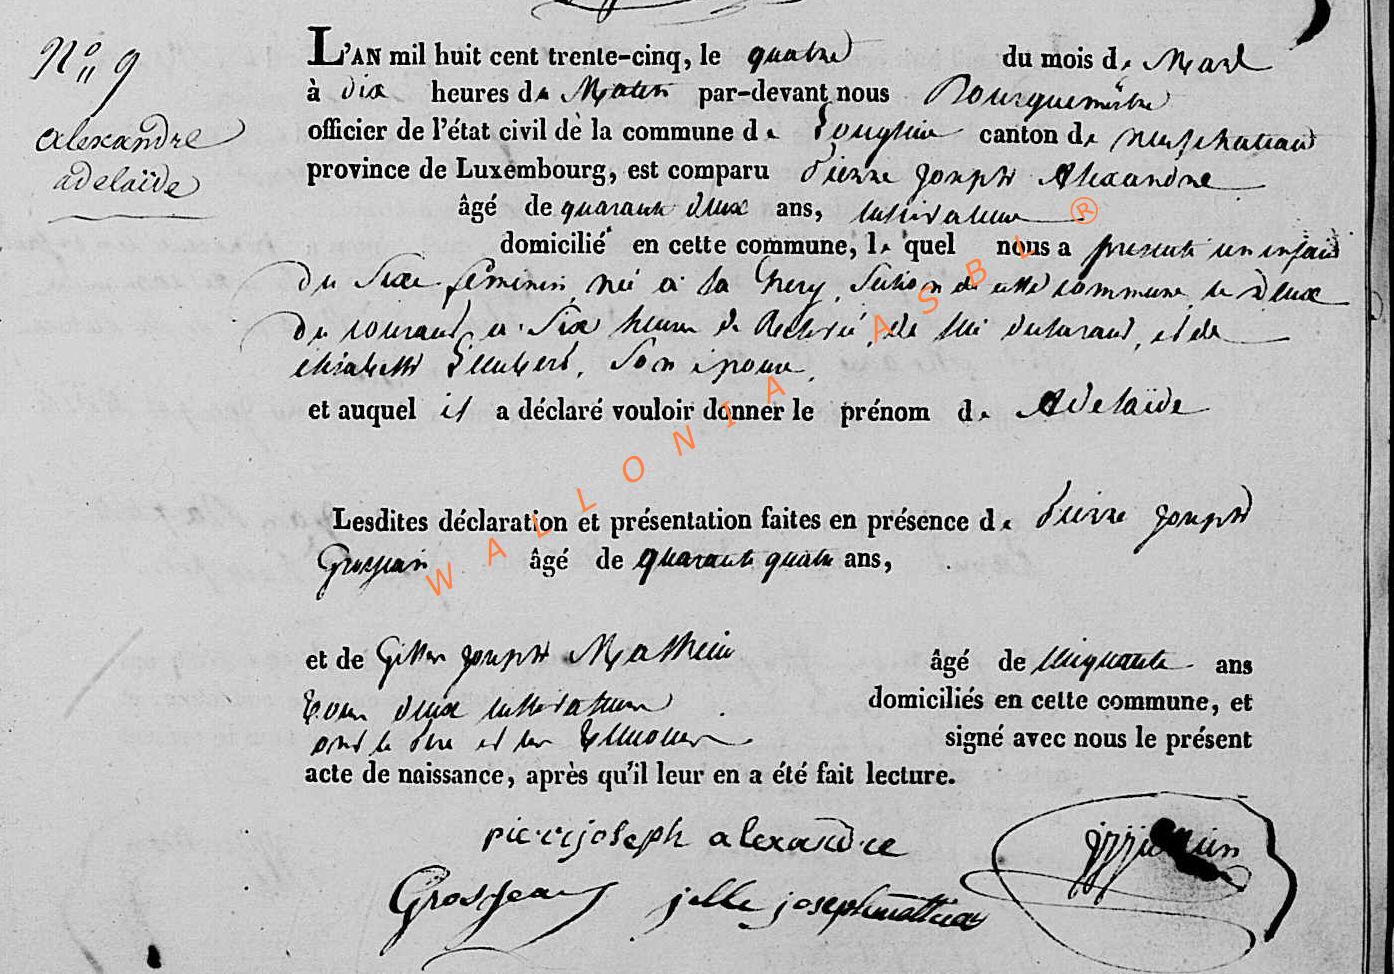 N° 9
alexandre
adelaïde
L'AN mil huit cent trente-cinq, le quatre du mois de Mars
à dix heures du Matin par-devant nous Bourguemêtre
officier de l'état civil de la commune de Longlier canton de neufchateau
province de Luxembourg, est comparu Pierre joseph Alexandre
âgé de quarante deux ans, cultivateur
domicilié en cette commune, lequel nous a presenté un enfant
du Sexe feminin, né à la hery, Section de cette commune le deux
du courant, a Six heures de Relevé, de lui declarant, et de
élisabeth, Son epouse,
et auquel il a déclaré vouloir donner le prénom de Adelaïde
Lesdites déclaration et présentation faites en présence de Pierre joseph
Grosjean âgé de quarante quatre ans,
et de Gilles joseph Mathieu âgé de cinquante ans
tous deux cultivateurs domiciliés en cette commune, et
ont le Père et les témoins signé avec nous le présent
acte de naissance, après qu'il leur en a été fait lecture.
pierre joseph alexandre
Grosjean jille joseph mathieu
WALLONIA ASBL ®